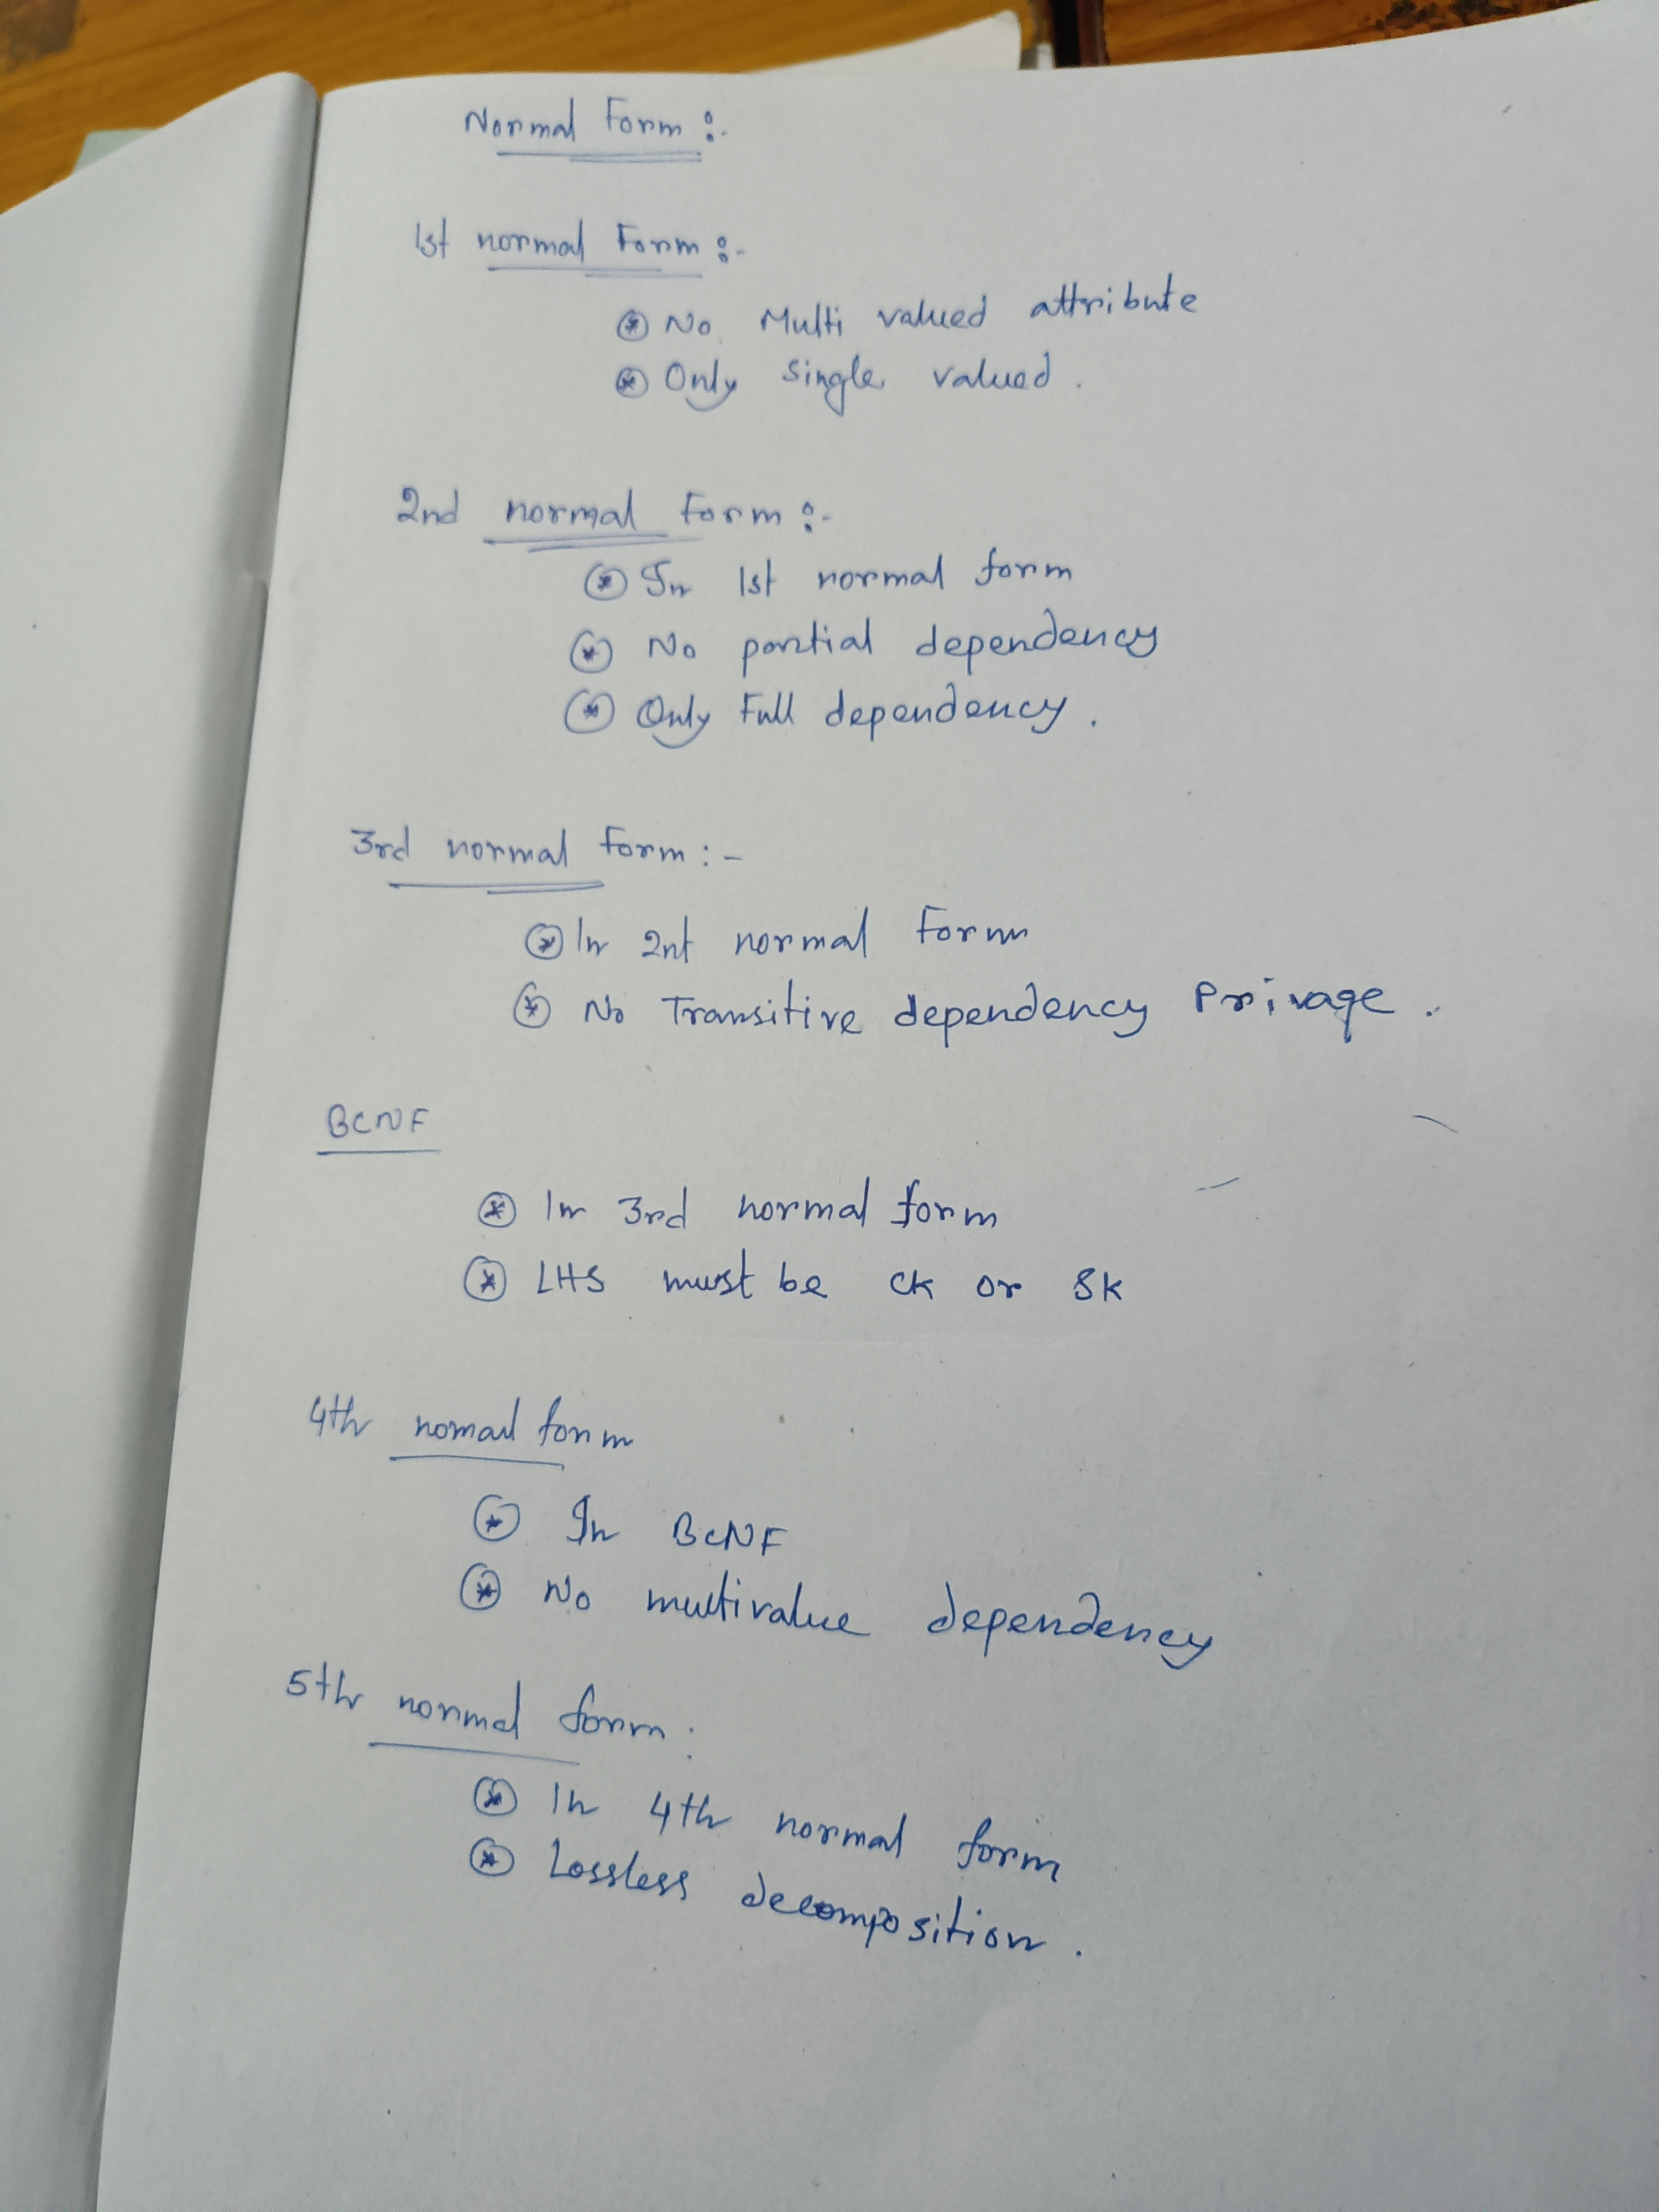 Normal Form :-
1st normal Form :-
* No Multi valued attribute
* Only Single valued.
2nd normal Form :-
* In 1st normal form
* No partial dependency
* Only Full dependency.
3rd normal Form :-
* In 2nt normal Form
* No Transitive dependency Privage.
BCNF
* In 3rd normal form
* LHS must be CK or SK
4th nomal form
* In BCNF
* No multivalue dependency
5th normal form :
* In 4th normal form
* Lossless decomposition.